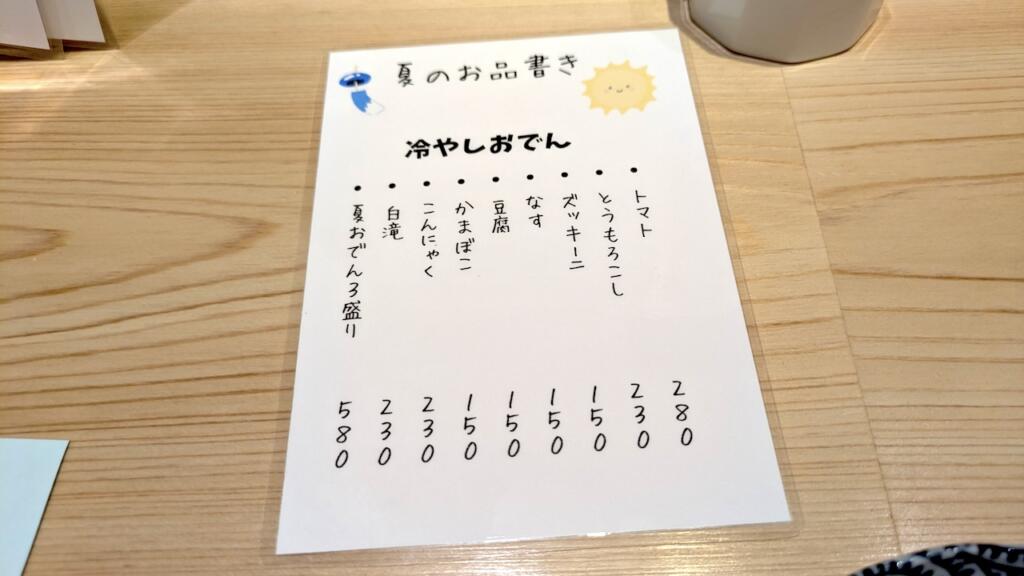 夏のお品書き
冷やしおでん
・トマト 280
・とうもろこし 230
・ズッキーニ 150
・なす 150
・豆腐 150
・かまぼこ 150
・こんにゃく 230
・白滝 230
・夏おでん3盛り 580